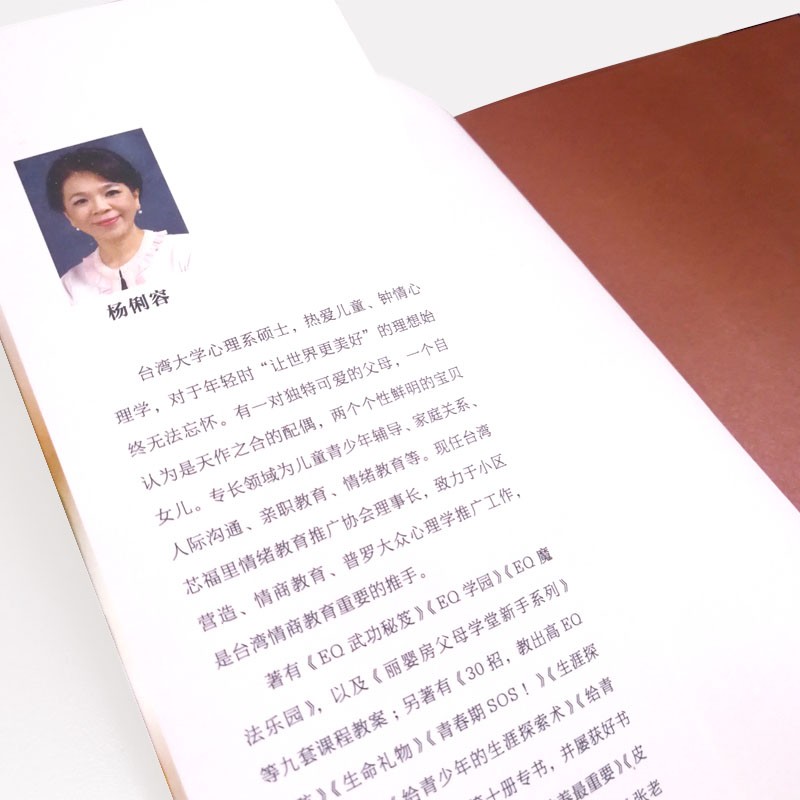 杨俐容
台湾大学心理系硕士，热爱儿童、钟情心
理学，对于年轻时“让世界更美好”的理想始
终无法忘怀。有一对独特可爱的父母，一个自
认为是天作之合的配偶，两个个性鲜明的宝贝
女儿。专长领域为儿童青少年辅导、家庭关系、
人际沟通、亲职教育、情绪教育等。现任台湾
芯福里情绪教育推广协会理事长，致力于小区
营造、情商教育、普罗大众心理学推广工作，
是台湾情商教育重要的推手。
著有《EQ 武功秘笈》《EQ 学园》《EQ 魔
法乐园》，以及《丽婴房父母学堂新手系列》
等九套课程教案；另著有《30 招，教出高 EQ
》《生命礼物》《青春期 SOS！》《生涯探
给青少年的生涯探索术》《给青
十册专书，并屡获好书
最重要》《皮
张老